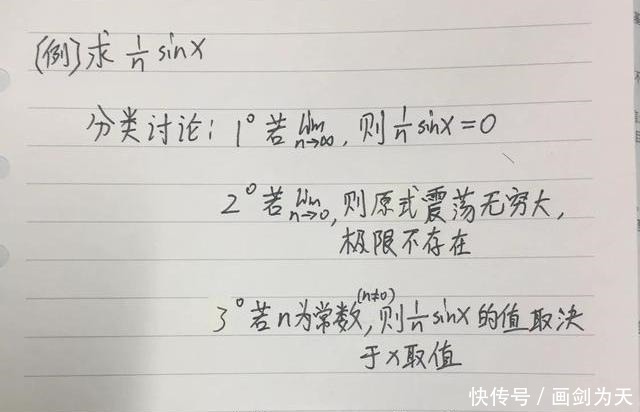 (例)求 1/n sinx
分类讨论: 1° 若 lim n→∞, 则 1/n sinx = 0
2° 若 lim n→0, 则原式震荡无穷大,
极限不存在
3° 若n为常数(n≠0), 则 1/n sinx 的值取决
于x取值
快传号 / 画剑为天